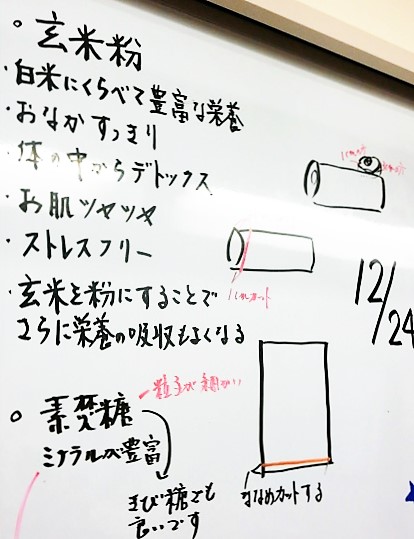 ○ 玄米粉
・白米にくらべて豊富な栄養
・おなかすっきり
・体の中からデトックス
・お肌ツヤツヤ
・ストレスフリー
・玄米を粉にすることで
さらに栄養の吸収もよくなる
1cmカット
12/24
○ 素焚糖
粒子が細かい
ミネラルが豊富
きび糖でも
良いです
ななめカットする